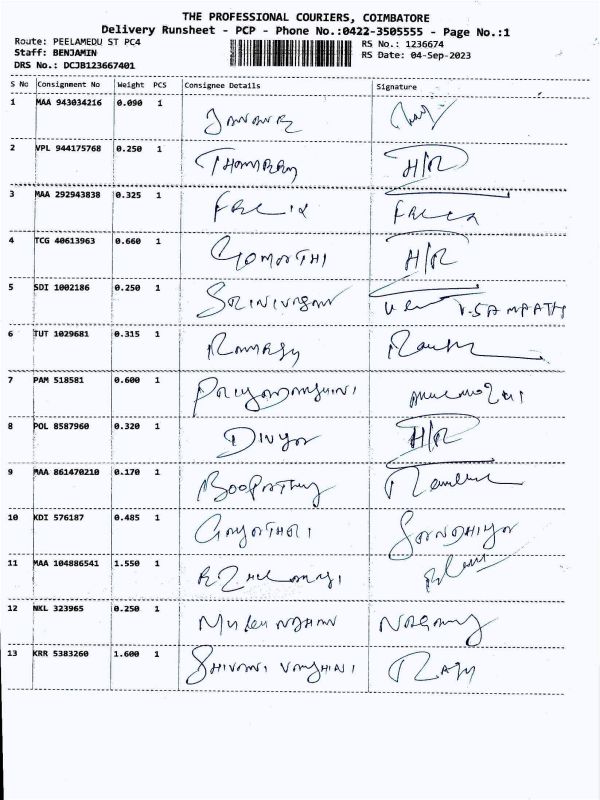 THE PROFESSIONAL COURIERS, COIMBATORE
Delivery Runsheet - PCP - Phone No.:0422-3505555 - Page No.:1
Route: PEELAMEDU ST PC4 RS No.: 1236674
Staff: BENJAMIN RS Date: 04-Sep-2023
DRS No.: DCJB123667401
S No Consignment No Weight PCS Consignee Details Signature
1 MAA 943034216 0.090 1
2 VPL 944175768 0.250 1 H/R
3 MAA 292943838 0.325 1 FELIX
4 TCG 40613963 0.660 1 GOMATHI H/R
5 SDI 1002186 0.250 1 SRINIVASAN V.SAMPATH
6 TUT 1029681 0.315 1 RAMESH
7 PAM 518581 0.600 1 PRIYADARSHINI
8 POL 8587960 0.320 1 DIVYA H/R
9 MAA 861470210 0.170 1 BOOPATHY
10 KDI 576187 0.485 1 GAYATHRI SANDHIYA
11 MAA 104886541 1.550 1
12 NKL 323965 0.250 1
13 KRR 5383260 1.600 1 SHIVANI VARSHINI RAJU